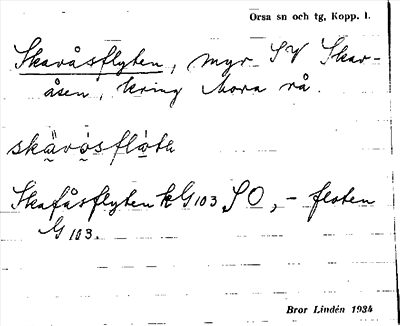 Orsa sn och tg, Kopp. l.
Skavåsflyten, myr SV Skav-
åsen, kring Mora rå.
skävòsflöta
Skafåsflyten kG103, SO, – floten
G 103.
Bror Lindén 1934